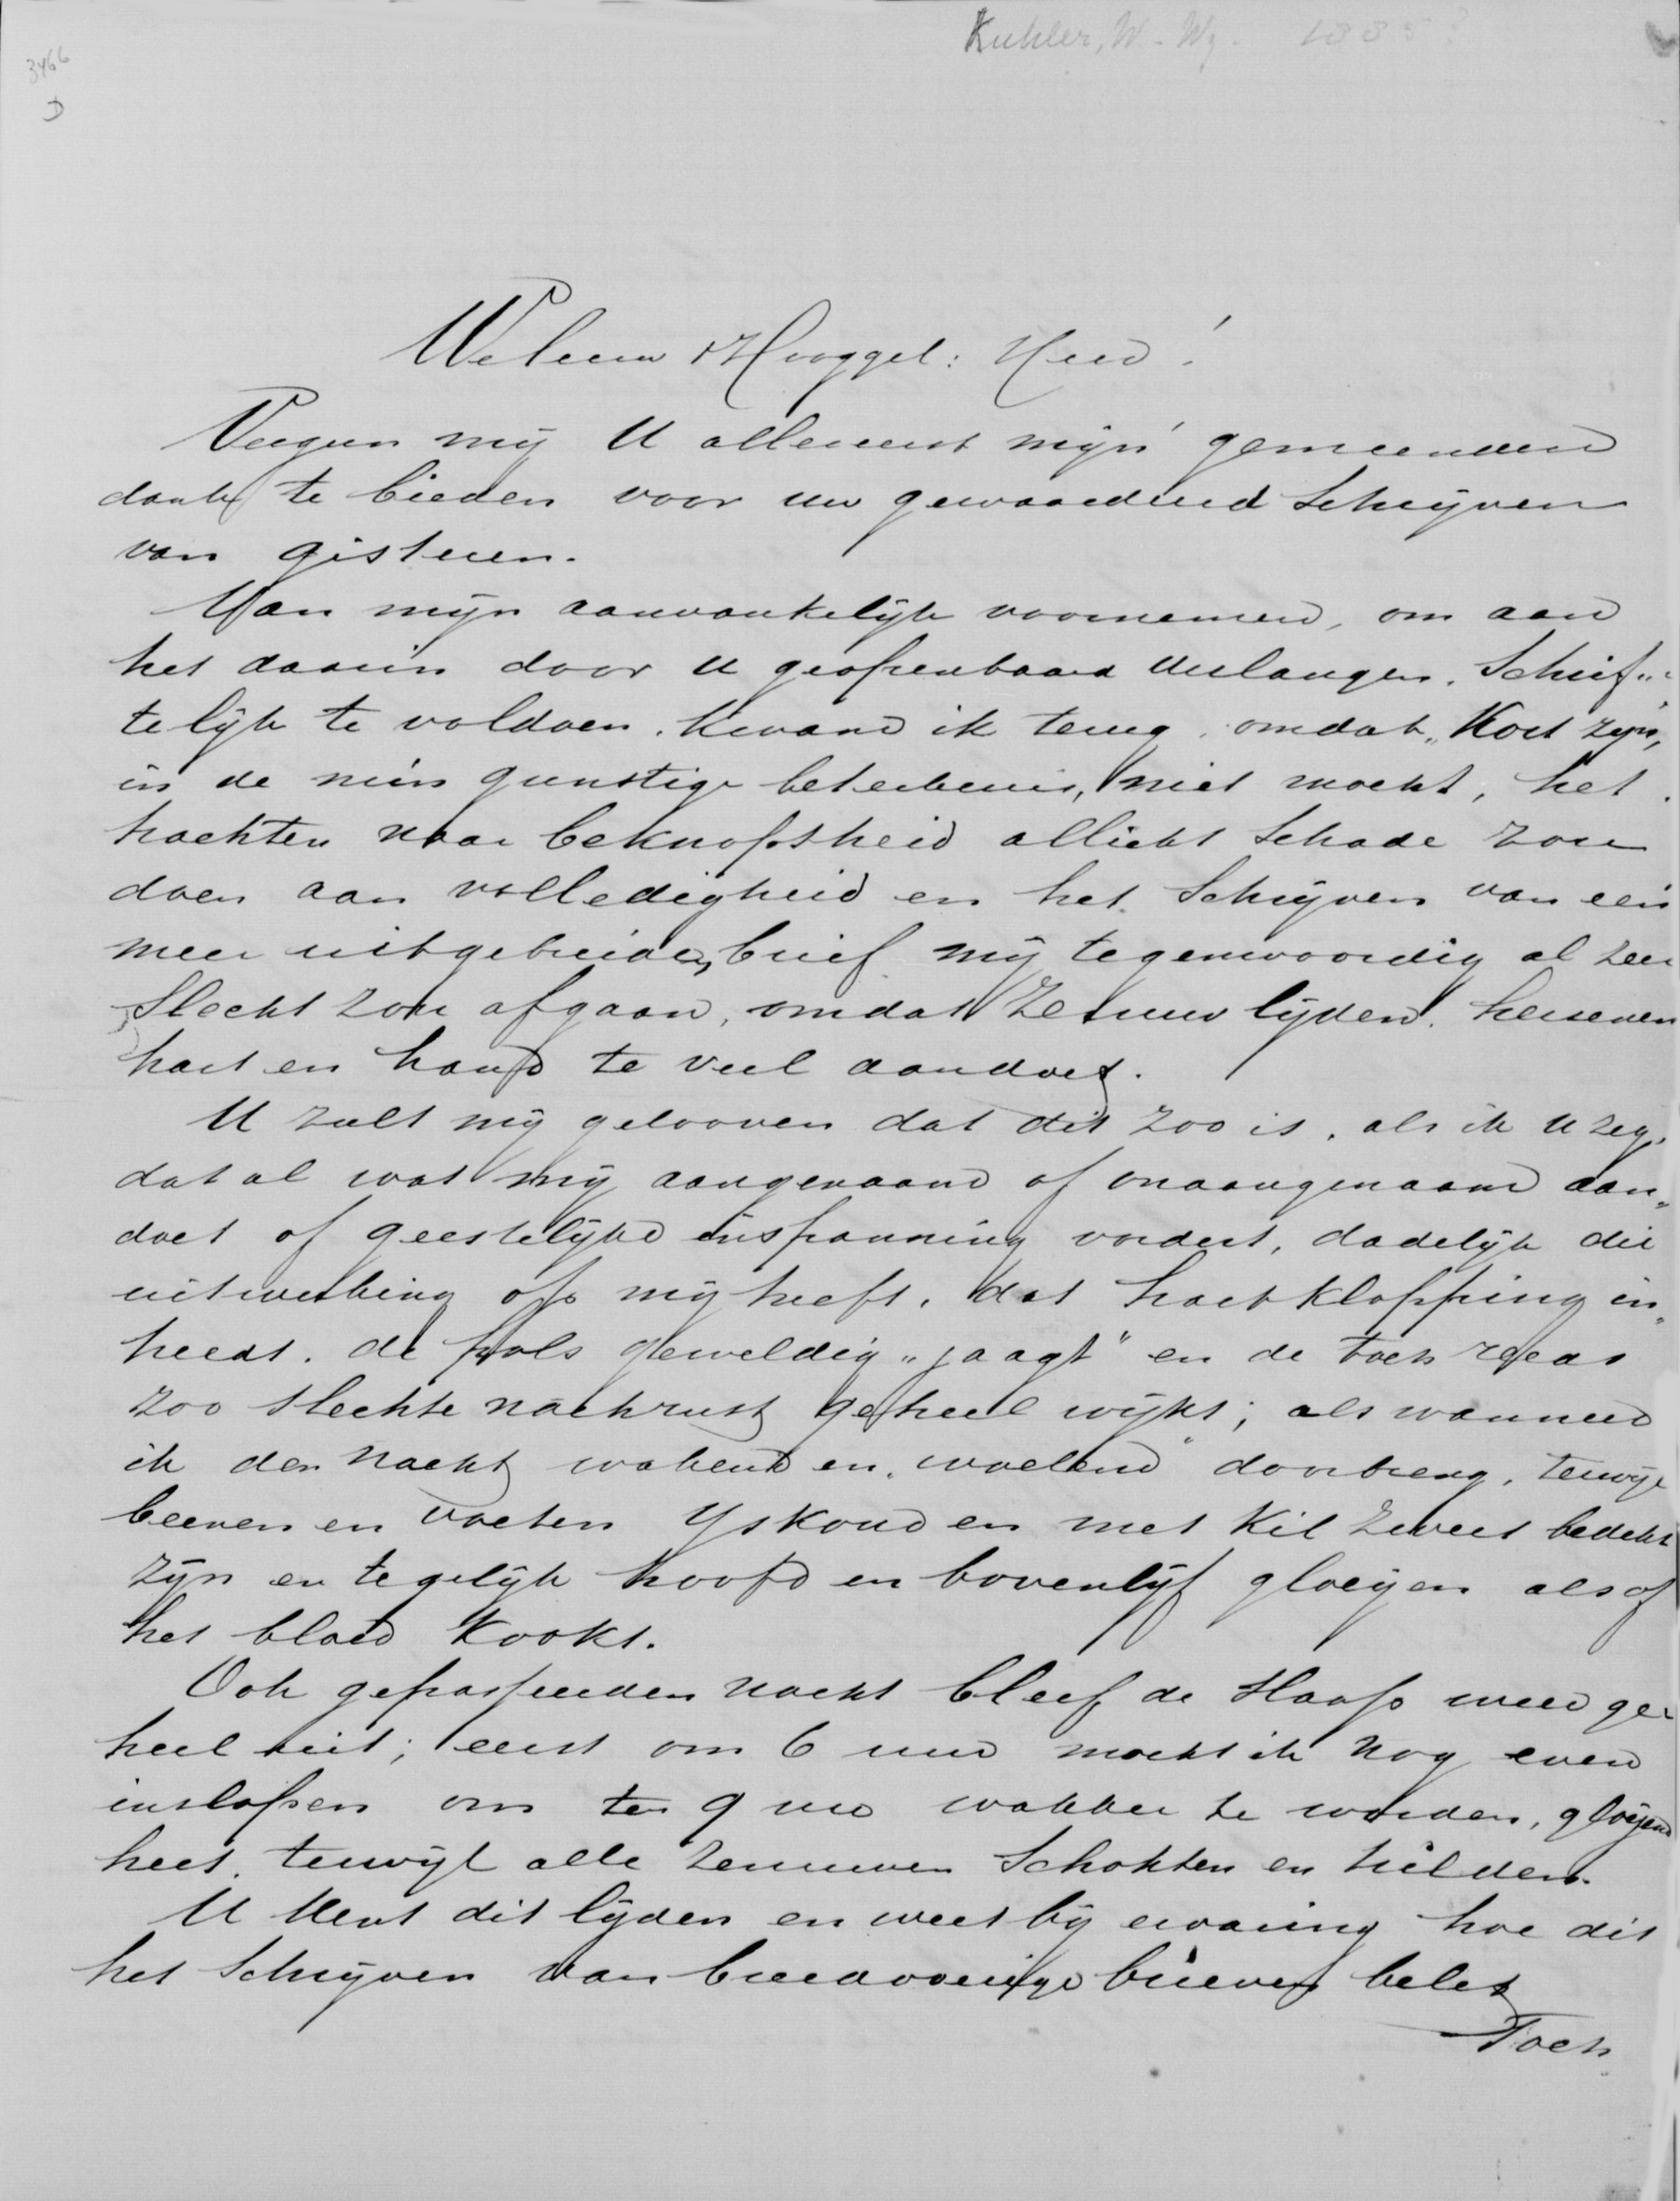 Kuhler, W. Wz. 1885?
3466
D
Weleerw Hooggel: Heer!
Vergun mij U allereerst mijn gemeenden
dank te bieden voor uw gewaardeerd schrijven
van gisteren.
Van mijn aanvankelijk voornemen, om aan
het daarin door U geopenbaard verlangen, schrif„
telijk te voldoen, kwam ik terug, omdat „Kort zijn,
in de min gunstige beteekenis, niet mocht, het
trachten naar beknoptheid allicht schade zou
doen aan volledigheid en het schrijven van een
meer uitgebreiden brief mij tegenwoordig al zeer
slecht zou afgaan, omdat zenuwlijden hersenen
hart en hoofd te veel aandoet.
U zult mij gelooven dat dit zoo is, als ik U zeg,
dat al wat mij aangenaam of onaangenaam aan„
doet of geestelijke inspanning vordert, dadelijk die
uitwerking op mij heeft, dat hartklopping in„
treedt, de pols geweldig „jaagt" en de toch reeds
zoo slechte nachtrust geheel wijkt; als wanneer
ik den nacht wakend en „woelend" doorbreng, terwijl
beenen en voeten Yskoud en met kil zweet bedekt
zijn en tegelijk hoofd en bovenlijf gloeijen alsof
het bloed kookt.
Ook gepasseerden nacht bleef de slaap weer ge„
heel uit; eerst om 6 uur mocht ik nog even
inslapen om ten 9 uur wakker te worden, gloeijend
heet, terwijl alle zenuwen schokten en trilden.
U kent dit lijden en weet bij ervaring hoe dit
het schrijven van breedvoerige brieven belet
Toch